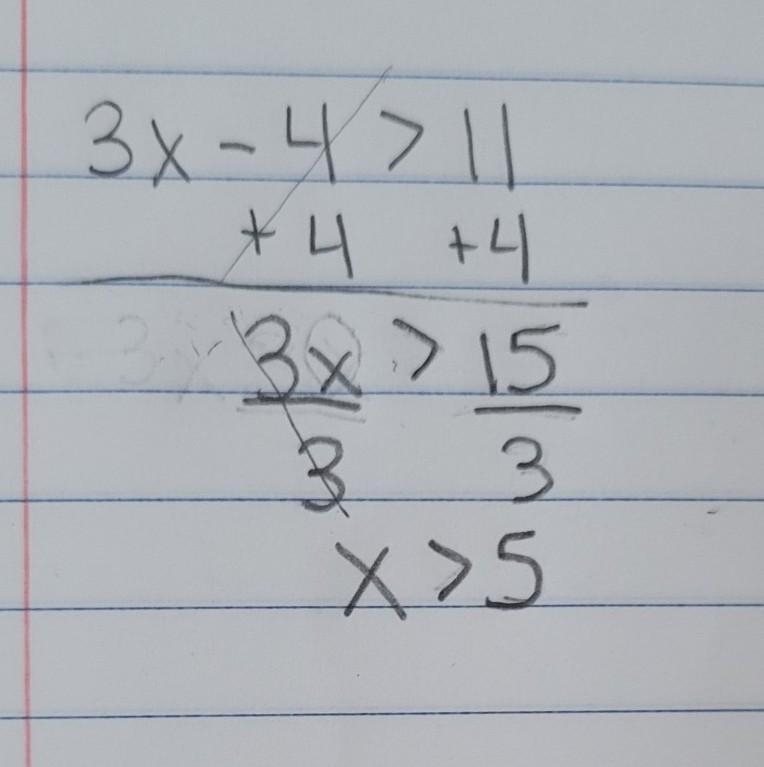 3x - 4 > 11
+ 4 +4
3x > 15
3 3
x > 5